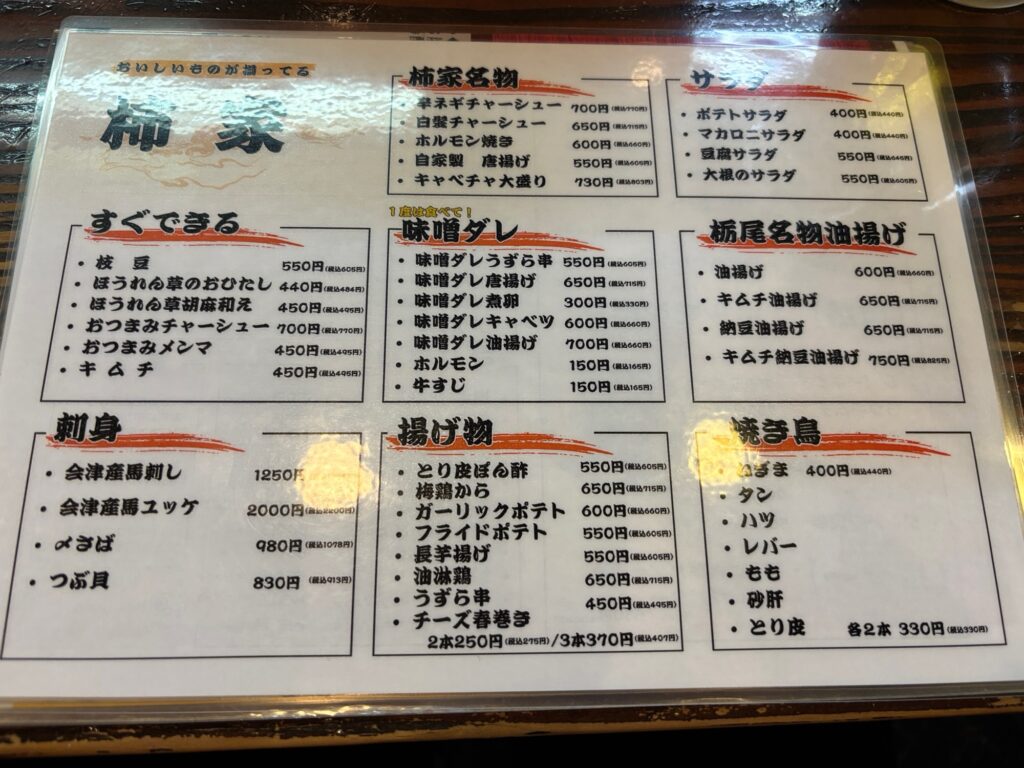 おいしいものが揃ってる
柿家
柿家名物
・辛ネギチャーシュー 700円(税込770円)
・白髪チャーシュー 650円(税込715円)
・ホルモン焼き 600円(税込660円)
・自家製 唐揚げ 550円(税込605円)
・キャベチャ大盛り 730円(税込803円)
サラダ
・ポテトサラダ 400円(税込440円)
・マカロニサラダ 400円(税込440円)
・豆腐サラダ 550円(税込645円)
・大根のサラダ 550円(税込605円)
すぐできる
・枝豆 550円(税込605円)
・ほうれん草のおひたし 440円(税込484円)
・ほうれん草胡麻和え 450円(税込495円)
・おつまみチャーシュー 700円(税込770円)
・おつまみメンマ 450円(税込495円)
・キムチ 450円(税込495円)
1度は食べて!
味噌ダレ
・味噌ダレうずら串 550円(税込605円)
・味噌ダレ唐揚げ 650円(税込715円)
・味噌ダレ煮卵 300円(税込330円)
・味噌ダレキャベツ 600円(税込660円)
・味噌ダレ油揚げ 700円(税込660円)
・ホルモン 150円(税込165円)
・牛すじ 150円(税込165円)
栃尾名物油揚げ
・油揚げ 600円(税込660円)
・キムチ油揚げ 650円(税込715円)
・納豆油揚げ 650円(税込715円)
・キムチ納豆油揚げ 750円(税込825円)
刺身
・会津産馬刺し 1250円
・会津産馬ユッケ 2000円(税込2200円)
・〆さば 980円(税込1078円)
・つぶ貝 830円(税込913円)
揚げ物
・とり皮ぽん酢 550円(税込605円)
・梅鶏から 650円(税込715円)
・ガーリックポテト 600円(税込660円)
・フライドポテト 550円(税込605円)
・長芋揚げ 550円(税込605円)
・油淋鶏 650円(税込715円)
・うずら串 450円(税込495円)
・チーズ春巻き
2本250円(税込275円)/3本370円(税込407円)
焼き鳥
・ねぎま 400円(税込440円)
・タン
・ハツ
・レバー
・もも
・砂肝
・とり皮 各2本 330円(税込330円)